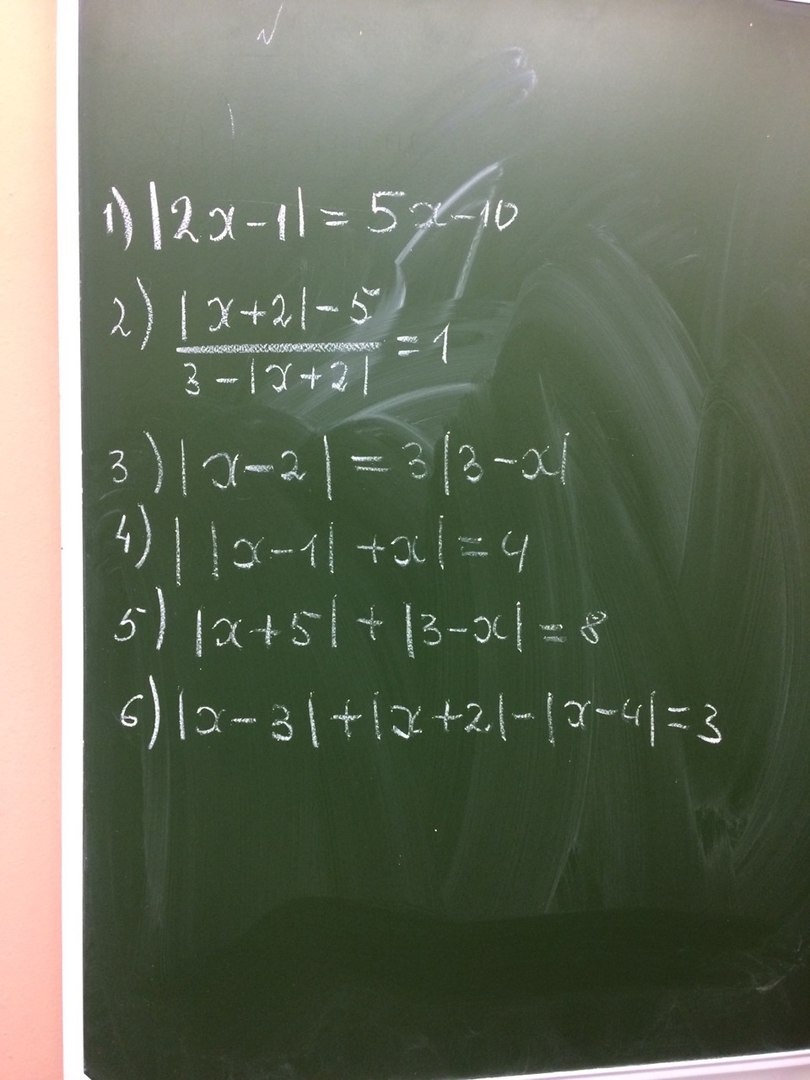 1) |2x-1| = 5x-10
2) |x+2|-5
3-|x+2| = 1
3) |x-2| = 3|3-x|
4) | |x-1| +x|= 4
5) |x+5| + |3-x| = 8
6) |x-3|+|x+2|-|x-4|=3